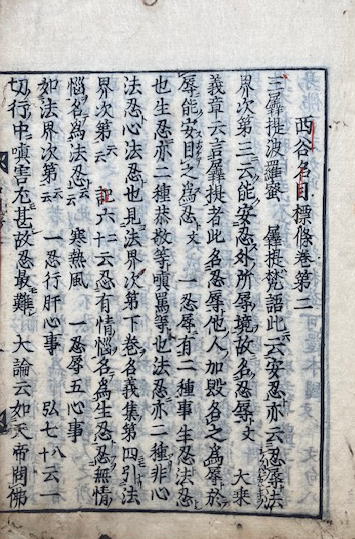 西谷名目標條巻第二
三羼提波羅蜜 羼提梵語此云安忍亦云忍辱法
界次第三云能安忍外所辱境故名忍辱文 大乗
義章六言羼提者此名忍辱他人加毀名之為辱於
辱能安目之為忍文 一忍辱有二種事生忍法忍
也生忍亦二種恭敬等嗔罵等也法忍亦二種非心
法忍心法忍也見法界次第下巻名義集第四引法
界次第云云 記六十云忍有情惱名為生忍忍無情
惱名為法忍云云 寒熱風 一忍辱五心事
如法界次第云云 一忍行肝心事 弘七十八云一
切行中嗔害尤甚故忍最難 大論云如天帝問佛